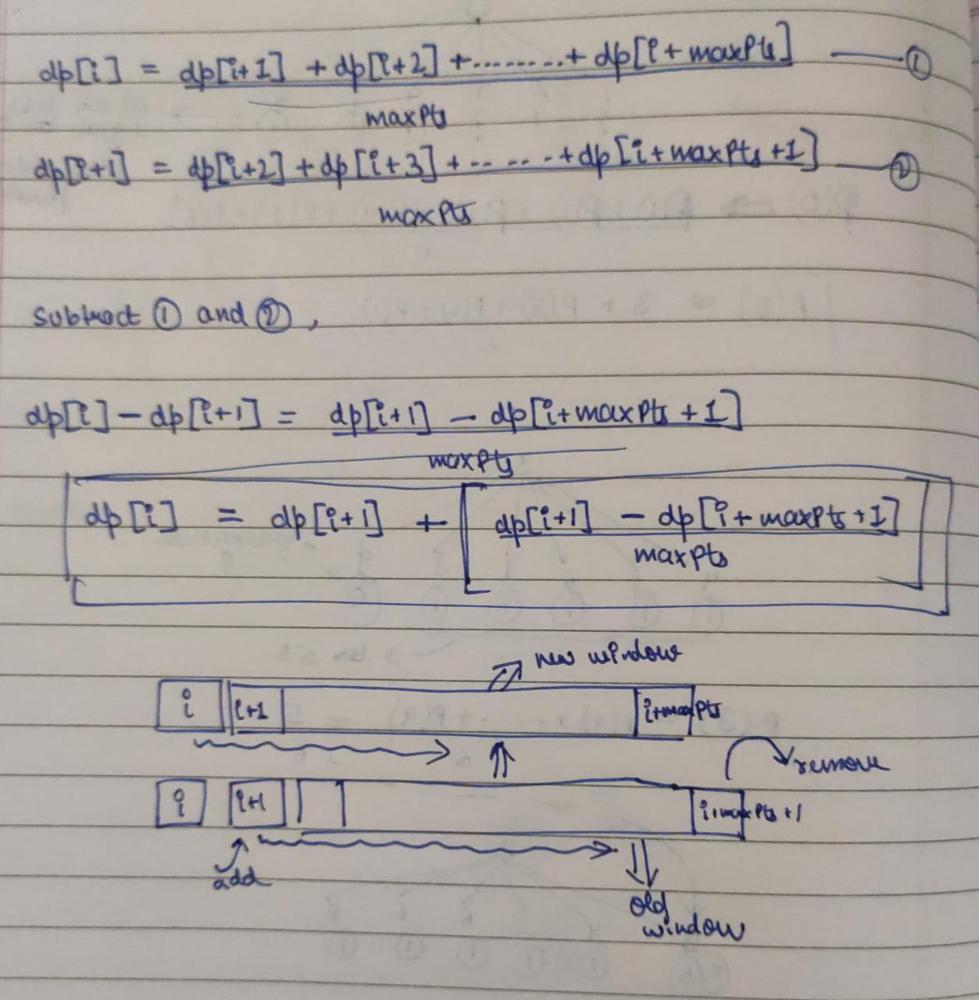 dp[i] = dp[i+1] + dp[i+2] +........+ dp[i+maxPts] —— ①
maxPts
dp[i+1] = dp[i+2] + dp[i+3] +.......+dp[i+maxPts+1] —— ②
maxPts
subtract ① and ②,
dp[i] - dp[i+1] = dp[i+1] - dp[i+maxPts+1]
maxPts
dp[i] = dp[i+1] + [dp[i+1] - dp[i+maxPts+1]]
maxPts
new window
i i+1 i+maxPts
remove
i i+1 i+maxPts+1
add
old
window